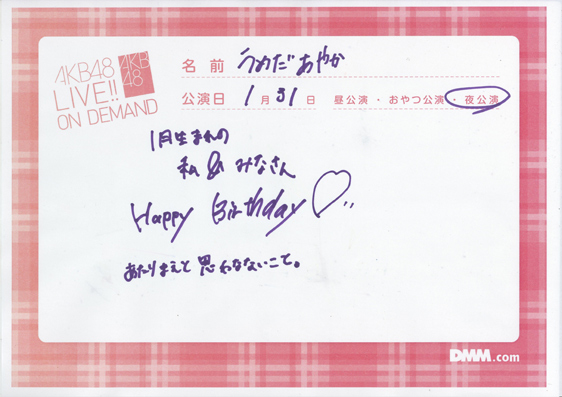 AKB48
LIVE!!
ON DEMAND
AKB
48
名前 うめだあやか
公演日 1月31日 昼公演・おやつ公演・夜公演
1月生まれの
私 & みなさん
Happy Birthday
あたりまえと思わないこと。
DMM.com